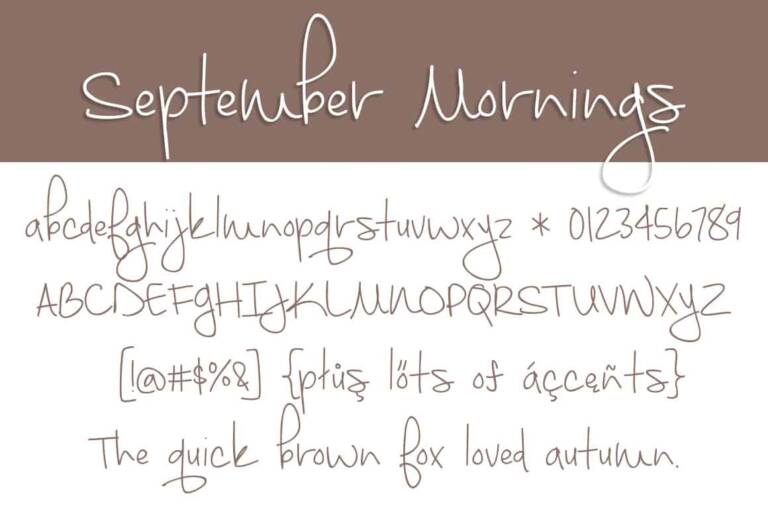 September Mornings
abcdefghijklmnopqrstuvwxyz * 0123456789
ABCDEFGHIJKLMNOPQRSTUVWXYZ
[!@#$%&] {płůş lőts of áçcęñts}
The quick brown fox loved autumn.